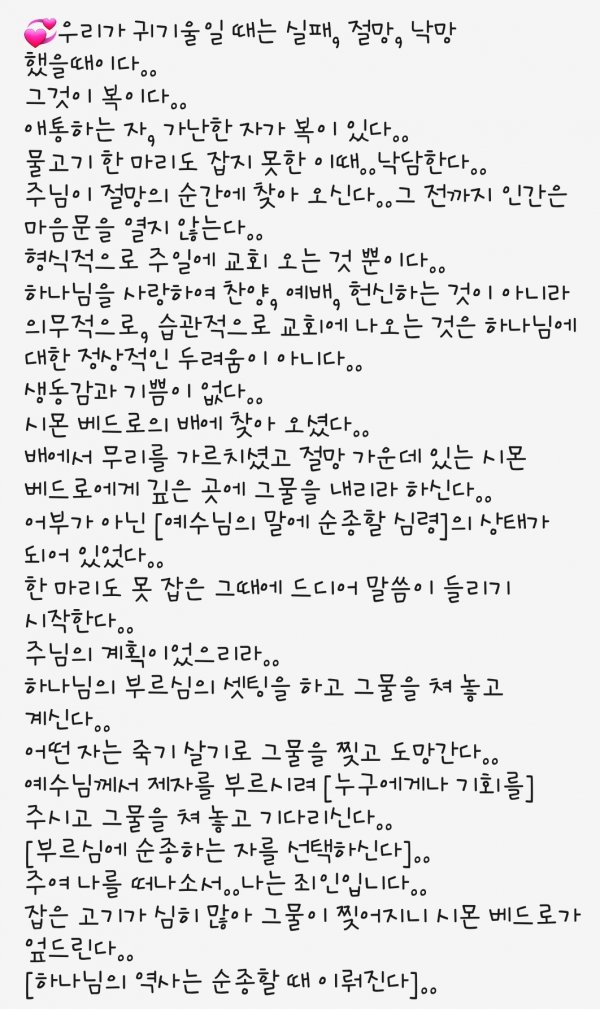 💞우리가 귀기울일 때는 실패, 절망, 낙망
했을때이다..
그것이 복이다..
애통하는 자, 가난한 자가 복이 있다..
물고기 한 마리도 잡지 못한 이때..낙담한다..
주님이 절망의 순간에 찾아 오신다..그 전까지 인간은
마음문을 열지 않는다..
형식적으로 주일에 교회 오는 것 뿐이다..
하나님을 사랑하여 찬양, 예배, 헌신하는 것이 아니라
의무적으로, 습관적으로 교회에 나오는 것은 하나님에
대한 정상적인 두려움이 아니다..
생동감과 기쁨이 없다..
시몬 베드로의 배에 찾아 오셨다..
배에서 무리를 가르치셨고 절망 가운데 있는 시몬
베드로에게 깊은 곳에 그물을 내리라 하신다..
어부가 아닌 [예수님의 말에 순종할 심령]의 상태가
되어 있었다..
한 마리도 못 잡은 그때에 드디어 말씀이 들리기
시작한다..
주님의 계획이었으리라..
하나님의 부르심의 셋팅을 하고 그물을 쳐 놓고
계신다..
어떤 자는 죽기 살기로 그물을 찢고 도망간다..
예수님께서 제자를 부르시려 [누구에게나 기회를]
주시고 그물을 쳐 놓고 기다리신다..
[부르심에 순종하는 자를 선택하신다]..
주여 나를 떠나소서..나는 죄인입니다..
잡은 고기가 심히 많아 그물이 찢어지니 시몬 베드로가
엎드린다..
[하나님의 역사는 순종할 때 이뤄진다]..